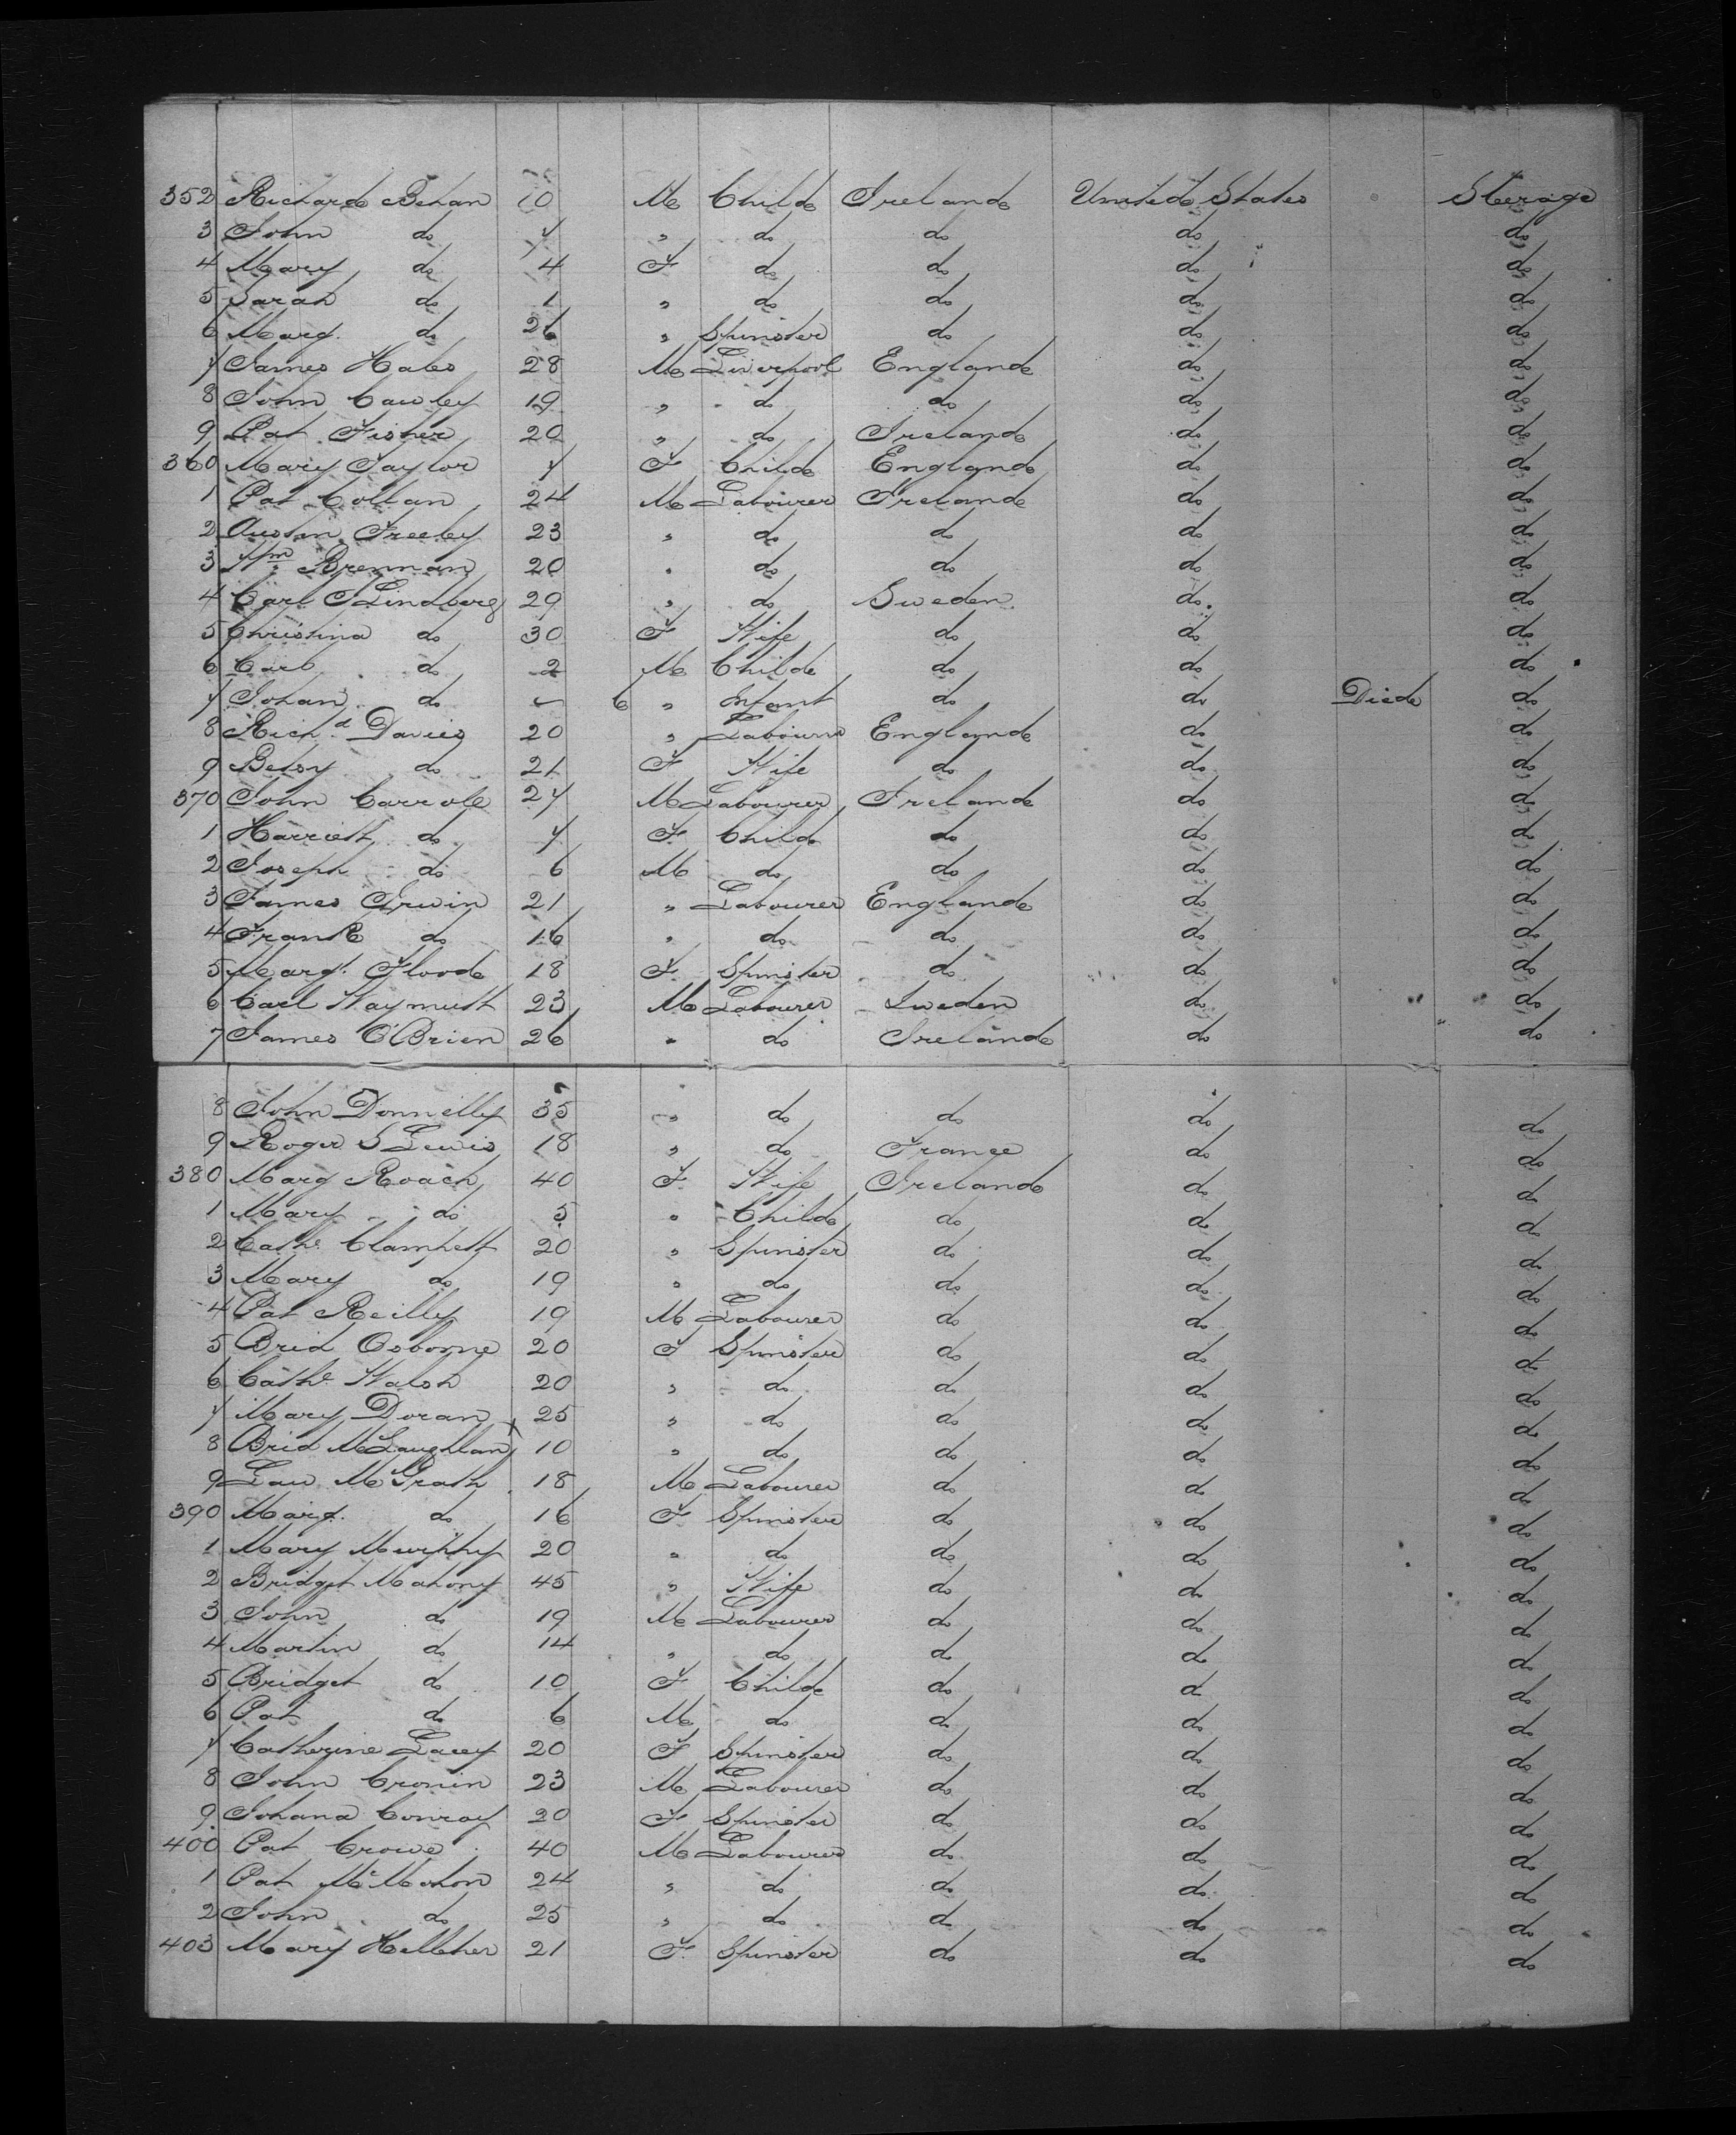 352 Richard Behan 10 M Child Ireland United States Steerage
3 John do 7 " do do do do
4 Mary do 4 F do do do do
5 Sarah do 1 " do do do do
6 Marg. do 26 " Spinster do do do
7 James Hales 28 M Liverpool England do do
8 John Cawley 19 " do do do do
9 Pat Fisher 20 " do Ireland do do
360 Mary Taylor 7 F Child England do do
1 Pat Collan 24 M Labourer Ireland do do
2 Austin Freeley 23 " do do do do
3 Wm Brennan 20 " do do do do
4 Carl J Lindberg 29 " do Sweden do do
5 Christina do 30 F Wife do do do
6 Carl do 2 M Child do do do
7 Johan do - 6 " Infant do do Died do
8 Richd Davies 20 " Labourer England do do
9 Betsy do 21 F Wife do do do
370 John Carroll 27 M Labourer Ireland do do
1 Harriett do 7 F Child do do do
2 Joseph do 6 M do do do do
3 James Irwin 21 " Labourer England do do
4 Frank do 16 " do do do do
5 Margt. Flood 18 F Spinster do do do
6 Carl Waymuth 23 M Labourer Sweden do do
7 James O'Brien 26 " do Ireland do do
8 John Donnelly 35 " do do do do
9 Roger S Lewis 18 " do France do do
380 Marg Roach 40 F Wife Ireland do do
1 Mary do 5 " Child do do do
2 Cathe Clampett 20 " Spinster do do do
3 Mary do 19 " do do do do
4 Pat Reilly 19 M Labourer do do do
5 Brid Osborne 20 F Spinster do do do
6 Cathe Walsh 20 " do do do do
7 Mary Doran 25 " do do do do
8 Brid McLaughlan 10 " do do do do
9 Law McGrath 18 M Labourer do do do
390 Margt. do 16 F Spinster do do do
1 Mary Murphy 20 " do do do do
2 Bridget Mahony 45 " Wife do do do
3 John do 19 M Labourer do do do
4 Martin do 14 " do do do do
5 Bridget do 10 F Child do do do
6 Pat do 6 M do do do do
7 Catherine Lacey 20 F Spinster do do do
8 John Cronin 23 M Labourer do do do
9 Johana Conroy 20 F Spinster do do do
400 Pat Crowe 40 M Labourer do do do
1 Pat McMohon 24 " do do do do
2 John do 25 " do do do do
403 Mary Kelleher 21 F Spinster do do do